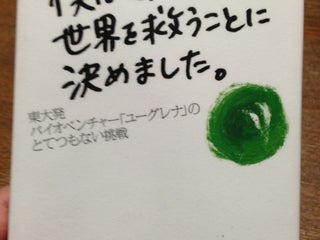 世界を救うことに
決めました。
東大発
バイオベンチャー「ユーグレナ」の
とてつもない挑戦